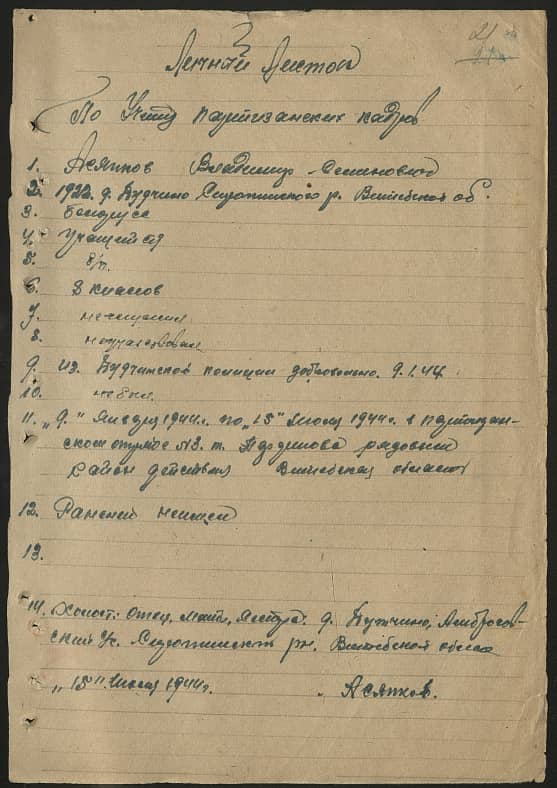 21
Личный Листок
По Учету партизанских кадров
1. Асяпков Владимир Семенович
2. 1922. д. Будчино Сиротинского р. Витебской об.
3. Белорусс
4. Учащийся
5. б/п.
6. 8 классов
7. не служил
8. не участвовал
9. из. Будчинской полиции добровольно. 9.1.44.
10. не был.
11. „9." Января 1944г. по „15" Июля 1944г. в партизан-
ском отряде №3. т. рядовым
район действия Витебская область
12. Ранений не имею
13.
14. Холост: отец, мать, сестра. д. Будчино,
Сиротинский рн. Витебской област
„15" Июля 1944г. Асяпков.